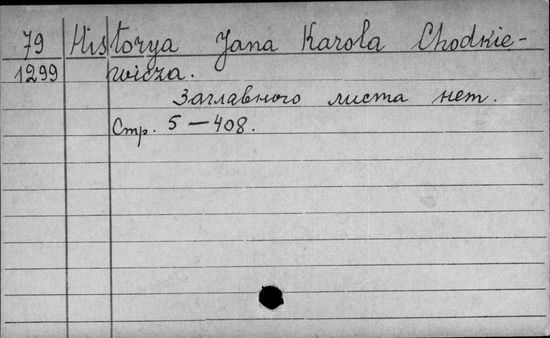 79 Historya Jana Karola Chodkie-
1299 wicza.
Заглавного листа нет.
Стр. 5 — 408.